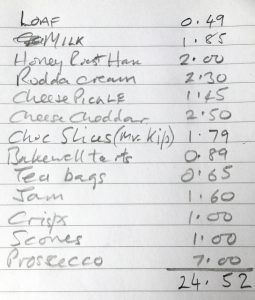 LOAF 0.49
MILK 1.85
Honey Roast Ham 2.00
Rodda cream 2.30
Cheese Pickle 1.45
Cheese Cheddar 2.50
Choc Slices (Mr. Kip) 1.79
Bakewell tarts 0.89
Tea bags 0.65
Jam 1.60
Crisps 1.00
Scones 1.00
Prosecco 7.00
24.52